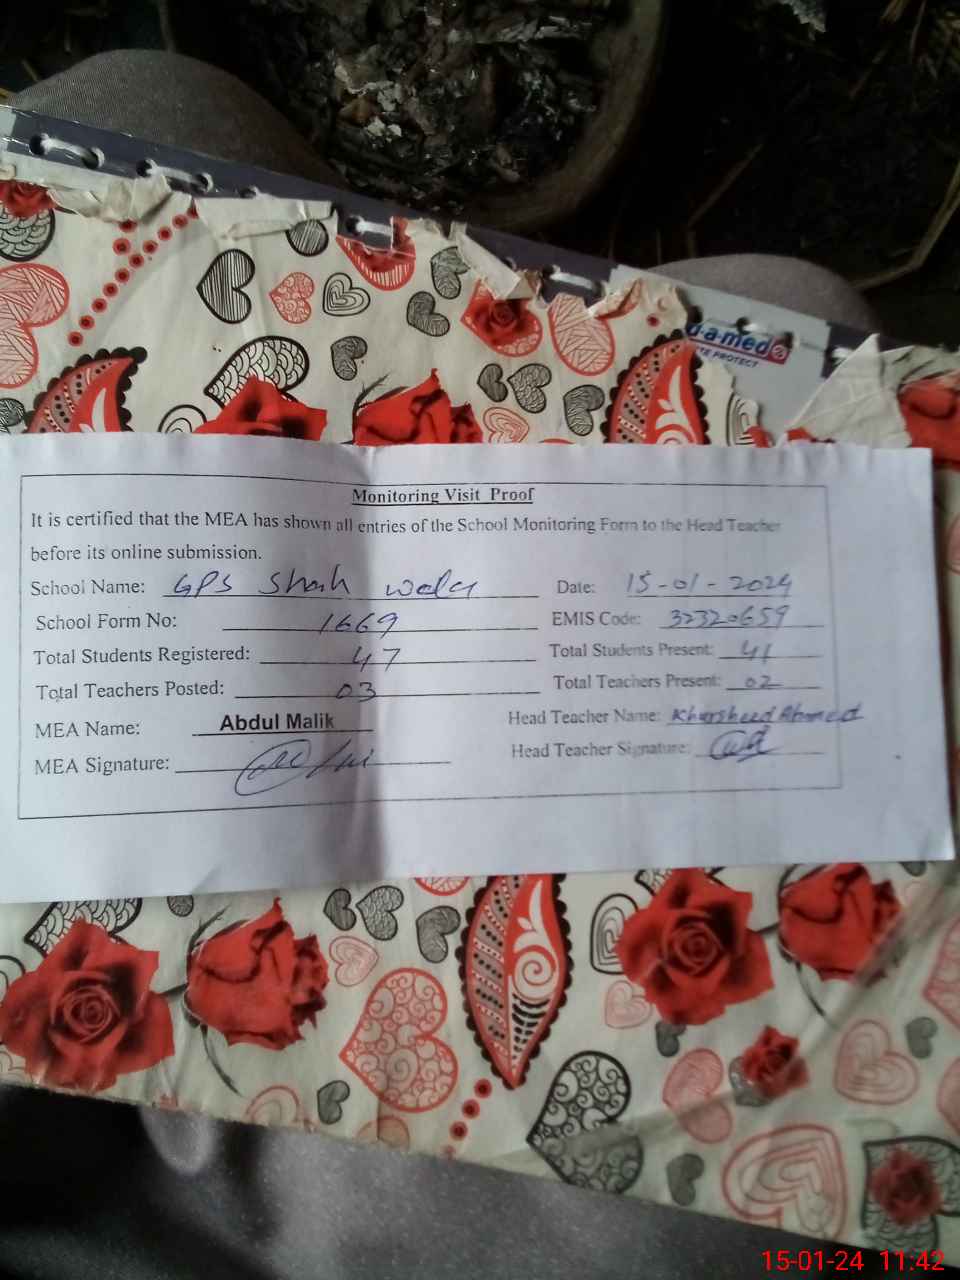 d·a·med
TE PROTECT
Monitoring Visit Proof
It is certified that the MEA has shown all entries of the School Monitoring Form to the Head Teacher
before its online submission.
School Name: GPS Shah wala Date: 15-01-2024
School Form No: 1669 EMIS Code: 32320659
Total Students Registered: 47 Total Students Present: 41
Total Teachers Posted: 03 Total Teachers Present: 02
MEA Name: Abdul Malik Head Teacher Name: Khursheed Ahmed
MEA Signature: Head Teacher Signature:
15-01-24 11:42